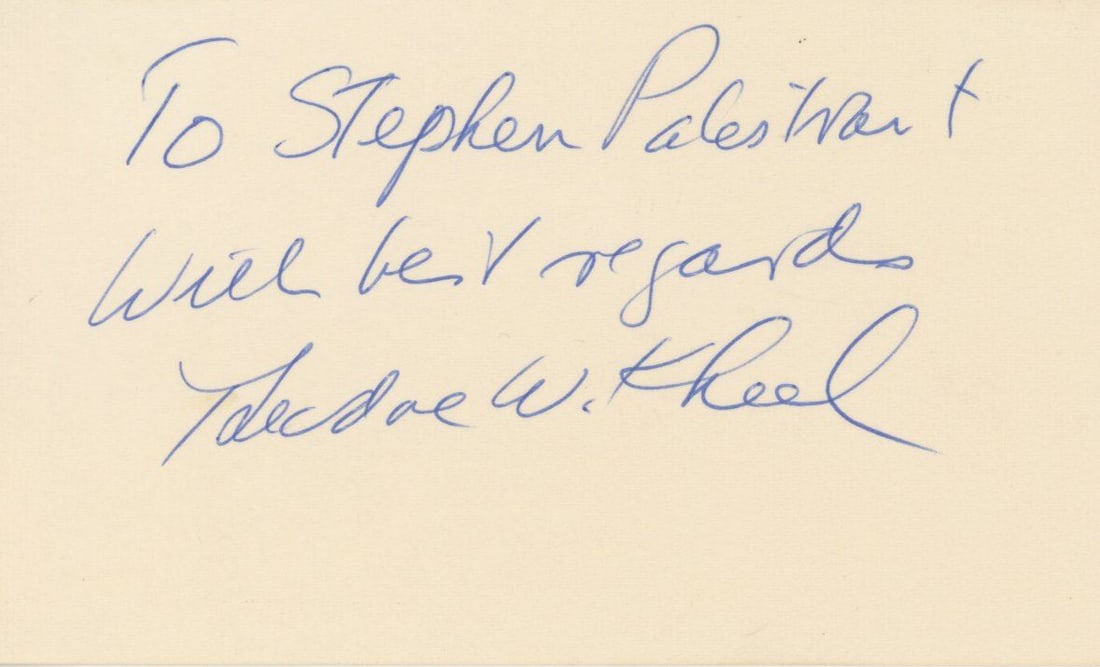 To Stephen Palestrant
With best regards
Theodore W. Kheel